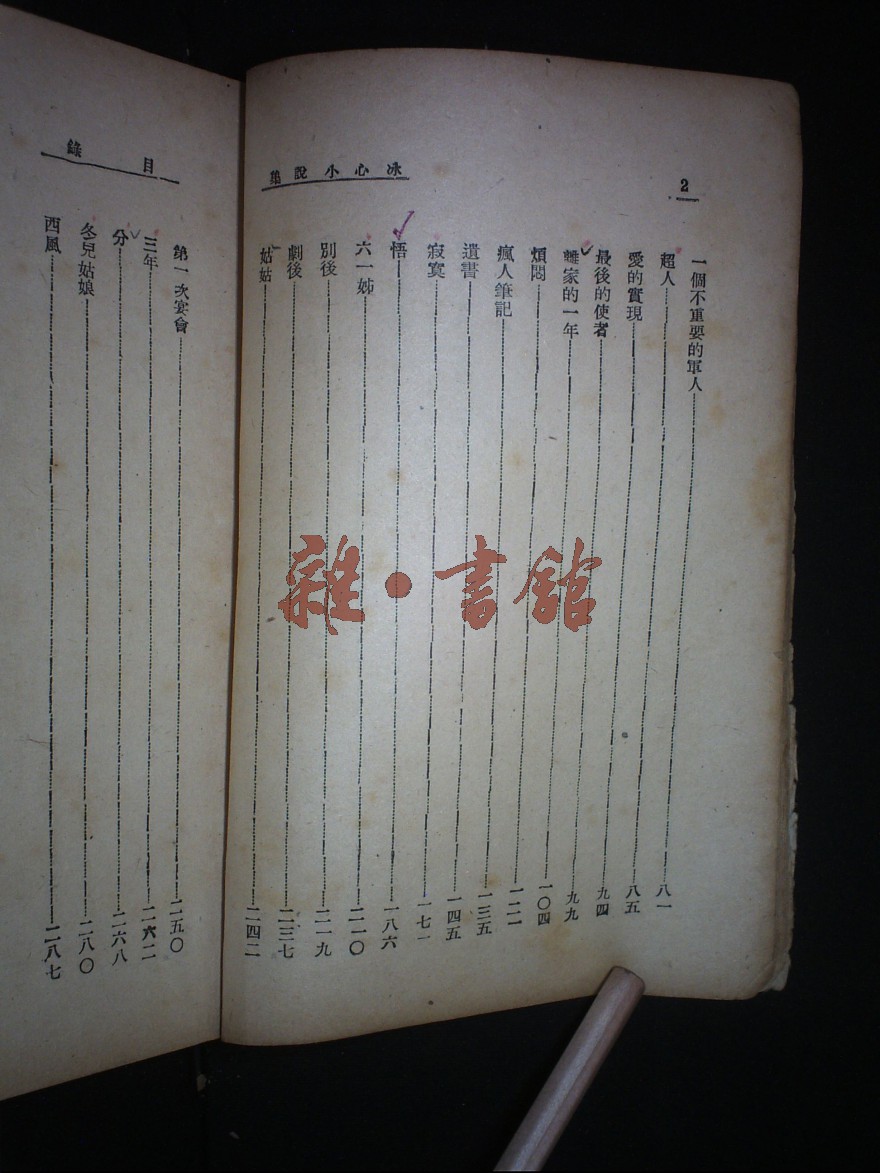 2
冰心小說集
一個不重要的軍人 八一
超人 八五
愛的實現 九四
最後的使者 九九
離家的一年 一〇四
煩悶 一二二
瘋人筆記 一三五
遺書 一四五
寂寞 一七一
悟 一八六
六一姊 二一〇
別後 二一九
劇後 二三七
姑姑 二四二
目錄
第一次宴會 二五〇
三年 二六二
分 二六八
冬兒姑娘 二八〇
西風 二八七
雜·書館